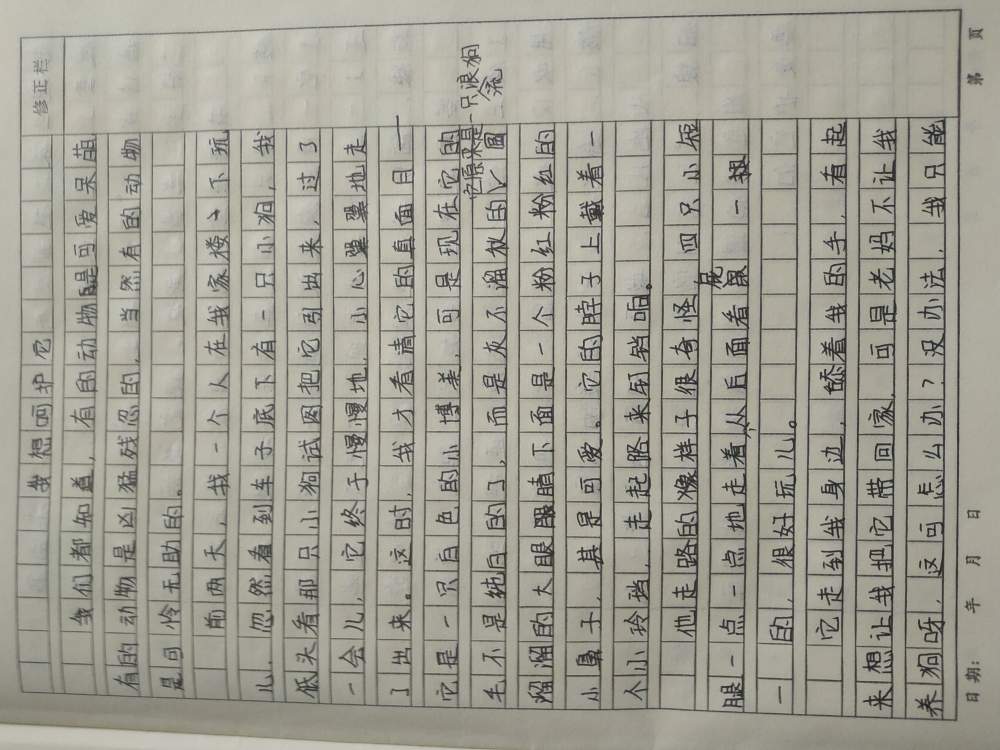 修正栏
我想呵护它
我们都知道，有的动物是可爱呆萌
有的动物是凶猛残忍的，当然有的动物
是可怜无助的。
前两天，我一个人在我家楼下玩
儿，忽然看到车子底下有一只小狗，我
低头看那只小狗试图把它引出来，过了
一会儿，它终于慢慢地，小心翼翼地走
了出来。这时，我才看清它的真面目——
它原来是一只流浪狗
它是一只白色的小博美，可是现在它的
毛不是纯白的了，而是灰不溜秋的圆
溜溜的大眼睛下面是一个粉红粉红的
小鼻子，甚是可爱。它的脖子上戴着一
个小玲珰，走起路来叮铛响。
他走路的像样子很奇怪 四只小短
腿一点一点地走着从后面看屁一扭
一 的，很好玩儿。
它走到我身边，舔着我的手，看起
来想让我把它带回家，可是老妈不让我
养狗呀，这可怎么办？没办法，我只能
日期： 年 月 日 第 页